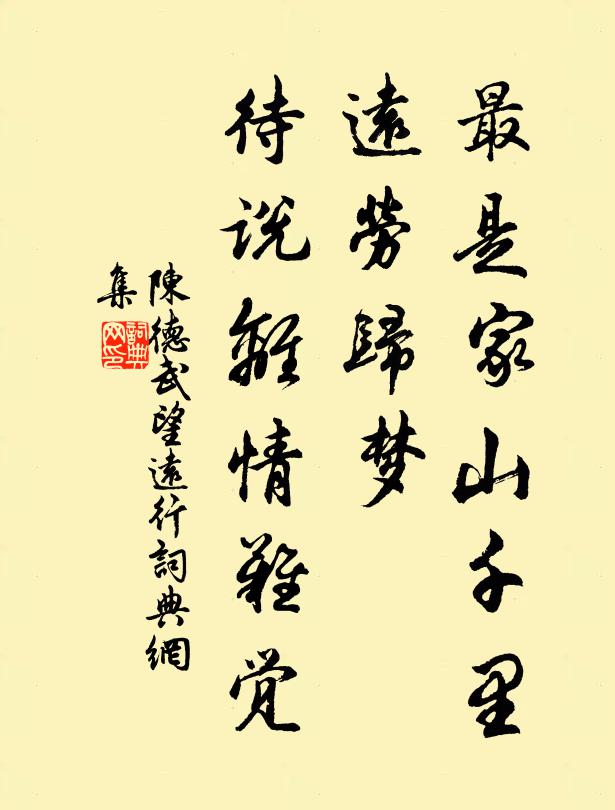 最是家山千里
遠勞歸梦
待说離情難觉
陳德武望遠行詞典網
集
詞典
网印